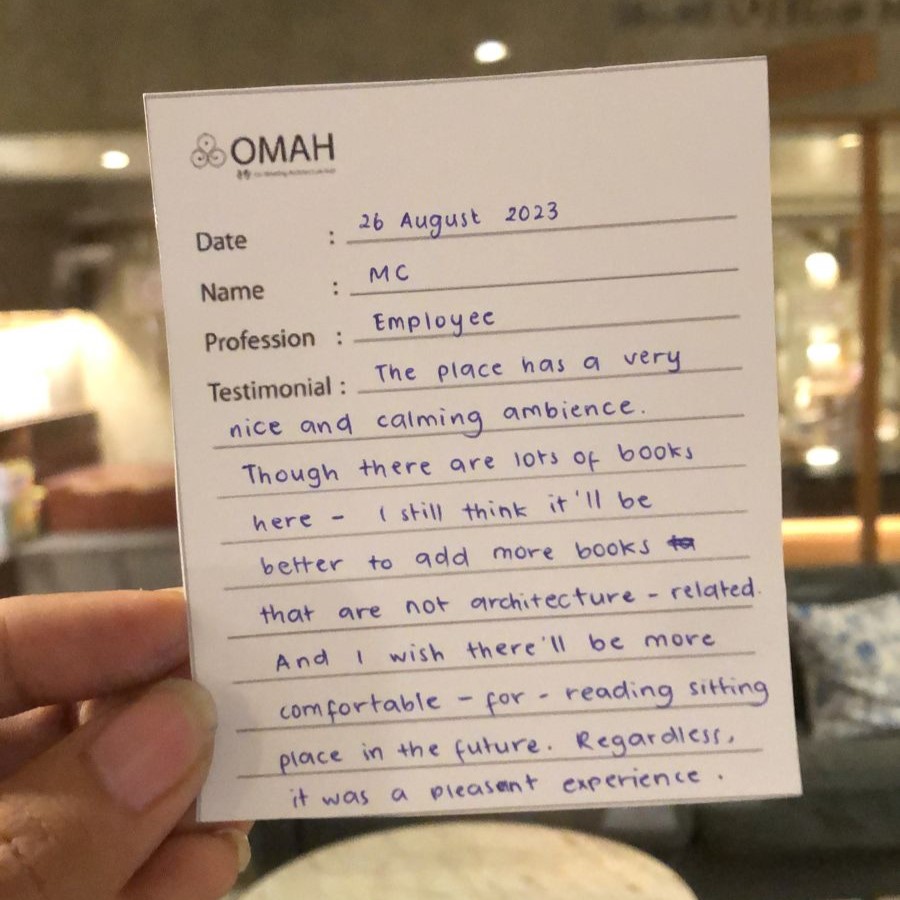 OMAH
Date : 26 August 2023
Name : MC
Profession : Employee
Testimonial : The place has a very
nice and calming ambience.
Though there are lots of books
here - I still think it'll be
better to add more books
that are not architecture - related.
And I wish there'll be more
comfortable - for - reading sitting
place in the future. Regardless,
it was a pleasant experience.